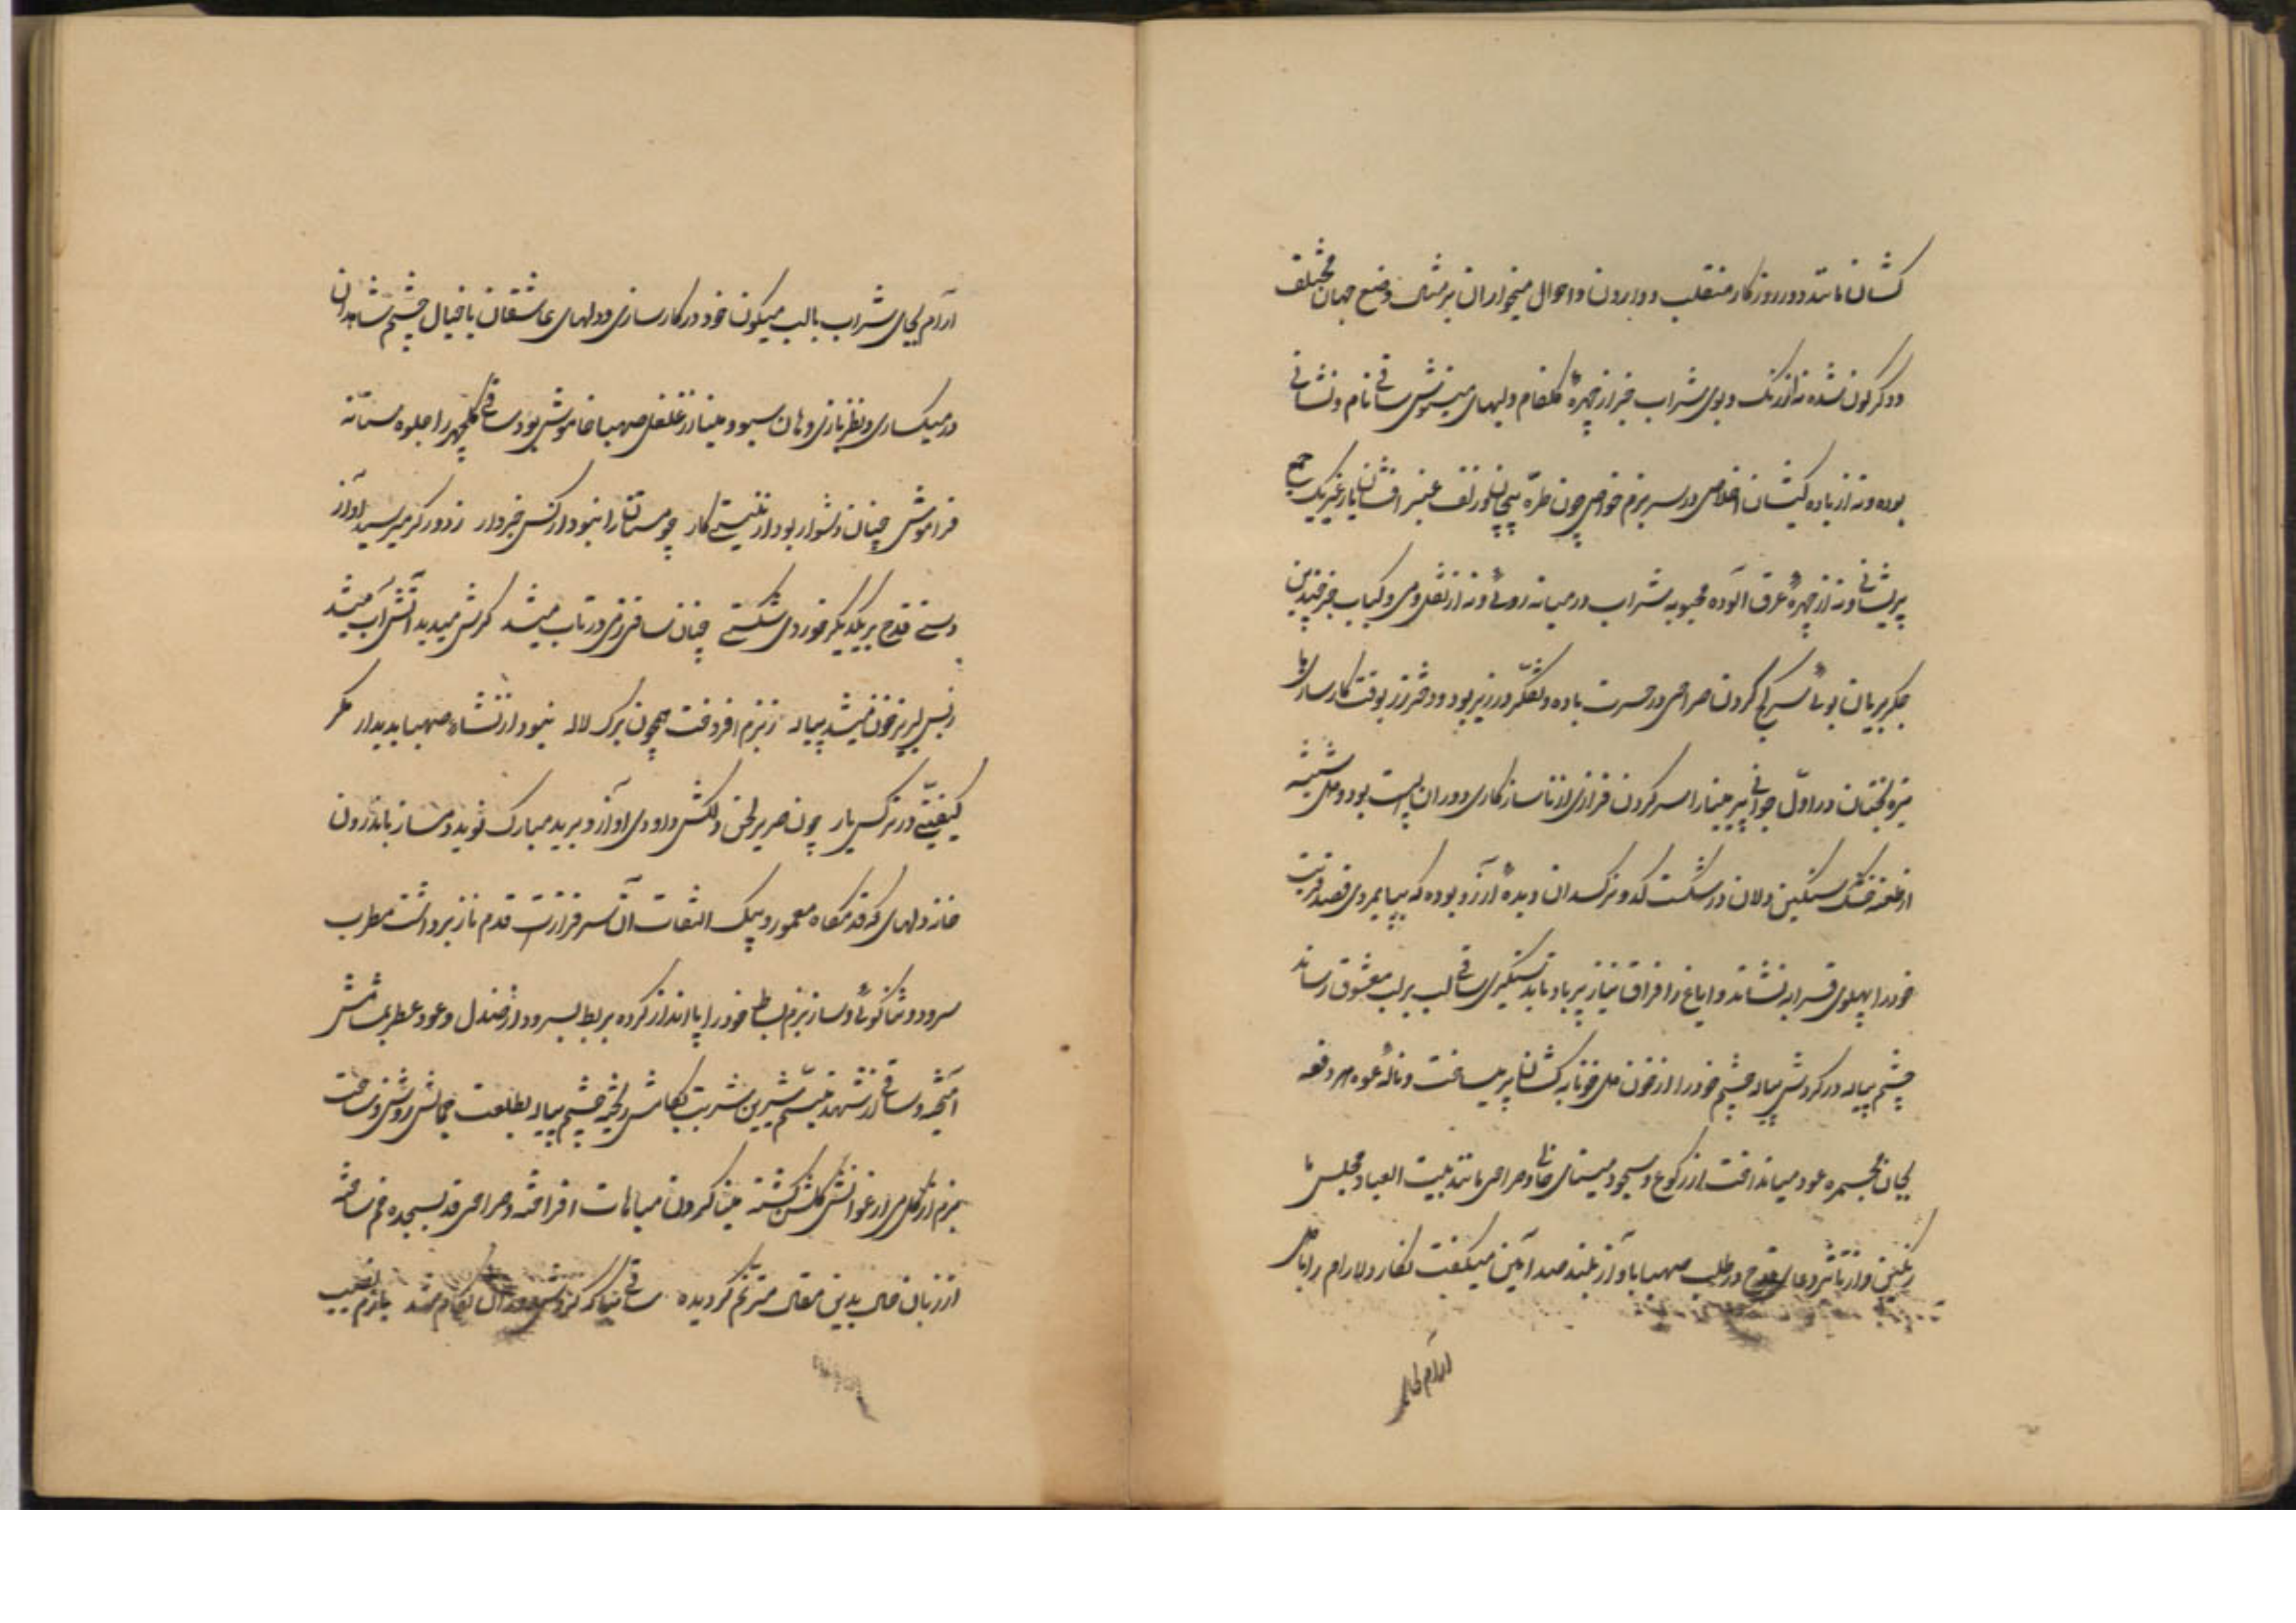 کشان مانند دور روزکار منقلب و واررون و احوال میخواران بر مثال وضع جهان مختلف
و دکرکون نشده نه از رنک و بوی شراب خبر از چهرهٔ کلفام و لبهای مینوش ساقی نام و نشانی
بوده و نه از باده کیشان اخلاص در سر بزم خواص چون طرّه پیچان و زلف عنبر افشان یار غیر یک جمع
پریشانی و نه از چهرهٔ عرق آلوده محبوبه شراب در میانه روئی و نه از نقل و می و کباب جز چندین
جکر بریان بوئی سر کج کردن صراحی در حسرت باده و تفکر در زیر بود و دختر رز بوقت کارسازی با
تیزه بختان در اوّل جوانی پیر مینا را سر کردن فرازی از ناسازکاری دوران پست بود و دل شیشه
از طعنه خشک سنکین دلان در شکست کدو نرکسدان دیدهٔ آرزو بوده که بپایمردی قصد قربت
خود را بپهلوی قرابه نشاند و ایاغ را فراق نیاز بر باد تا بدستکیری ساقی لب بر لب معشوق رساند
چشم پیاله در کردش پیاله چشم خود را از خون دل خونابه کشان پر میساخت و نالهٔ عود هر دفعه
بجان مجمره عود میانداخت از رکوع و سجود مینای خالی و صراحی مانند بیت العباد مجلس ما
رنکین و از تاثیر دعای قدح در طلب صهبا با آواز بلند صدا آمین میکفت نکار دلارام را با دل
آرام بجای
آرام بجای شراب با لب میکون خود در کارسازی و دلهای عاشقان با خیال چشم شاهدان
در میکساری و نظربازی دهان سبو و مینا از غلغل صهبا خاموش بود و ساقی کلچهر را جلوه مستانه
فراموش چنان دشوار بود از نیستی کار چو مستان را نبود از کس خبردار ز دور کر میرسید آواز
دستی قدح بر یکدیکر خوردی شکستی چنان ساقی ز می در تاب میشد کرش میدید آتش آب میشد
ز بس لبریز خون میشد پیاله ز بزم افروخت همچون برک لاله نبود از نشاء صهبا پدیدار مکر
کیفیتی در نرکس یار چون صریر لحن دلکش داودی آواز و برید مبارک نوید دمساز باندرون
خانه دلهای که قدمکاه معمور و پیک التفات آن سرفرازست قدم ناز برداشت مطرب
سرود و ثناکوئی و ساز بزم بساط خود را پا انداز کرده بربط بسرود از صندل و عود عطر بمشامش
آمیخته و ساقی از شهد تبسّم شیرین شربت بکامش ریخته چشم پیاله بطلعت جمالش روشن و ساحت
بزم از کل می ارغوانش کلشن کشته مینا کردن مباهات افراخته و صراحی قد بسجده خم ساخته
از زبان حال بدین مقال مترنم کردیده ساقی بیا که کردش دوران بکام شد بازم نصیب